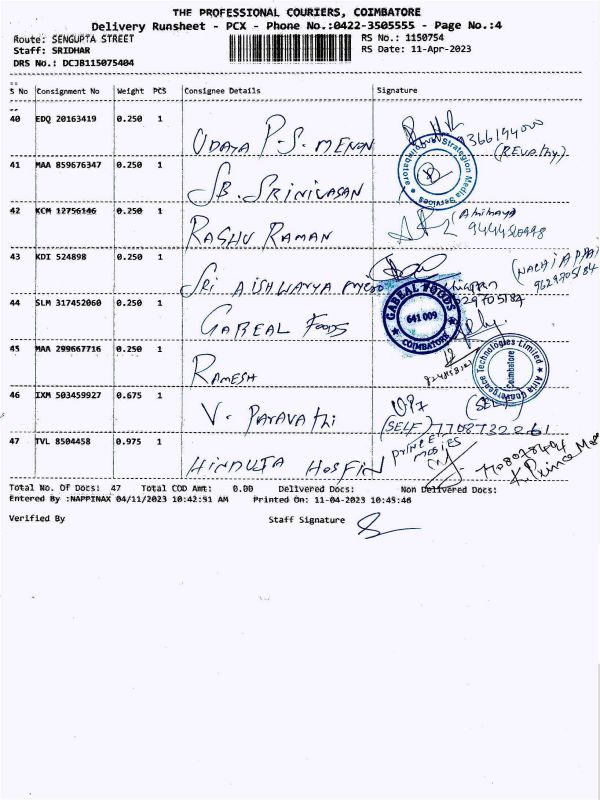 THE PROFESSIONAL COURIERS, COIMBATORE
Delivery Runsheet - PCX - Phone No.:0422-3505555 - Page No.:4
Route: SENGUPTA STREET RS No.: 1150754
Staff: SRIDHAR RS Date: 11-Apr-2023
DRS No.: DCJB115075404
S No Consignment No Weight PCS Consignee Details Signature
40 EDQ 20163419 0.250 1 UDAYA P.S. MENON
(REVathy)
41 MAA 859676347 0.250 1 SB. SRINIVASAN
Strategion Media Services Coimbatore
42 KCM 12756146 0.250 1 RAGHU RAMAN
43 KDI 524898 0.250 1 SRI AISHWARYA
9629705184
44 SLM 317452060 0.250 1 GABEAL FOODS
GABEAL FOODS 641 009 COIMBATORE
45 MAA 299667716 0.250 1 RAMESH
Technologies Limited Coimbatore
46 IXM 503459927 0.675 1 V. PARAVATHI
(SELF) 7708732261
47 TVL 8504458 0.975 1 HINDUJA HOSFIN
PRINCE
Total No. Of Docs: 47 Total COD Amt: 0.00 Delivered Docs: Non Delivered Docs:
Entered By :NAPPINAX 04/11/2023 10:42:51 AM Printed On: 11-04-2023 10:45:46
Verified By Staff Signature